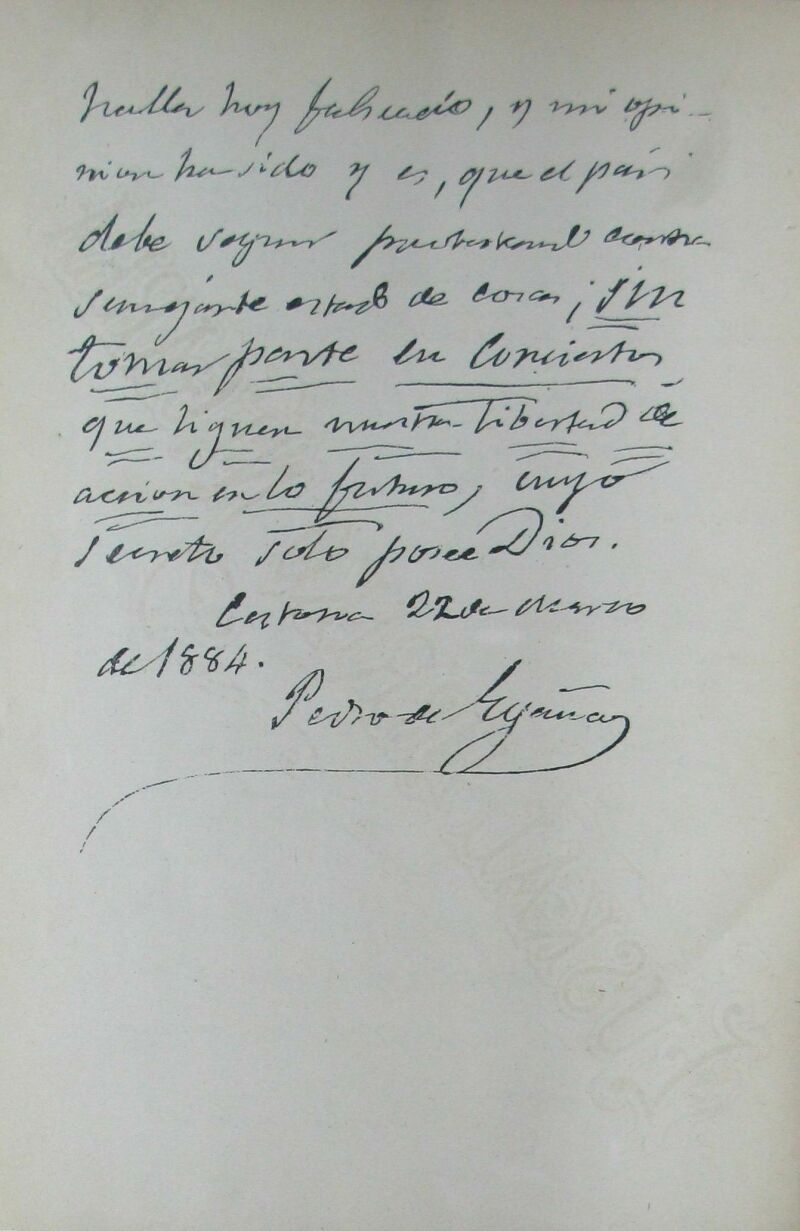 halla hoy falseado, y mi opi-
nion ha sido y es, que el país
debe seguir protestando contra
semejante estado de cosas; sin
tomar parte en Conciertos
que liguen nuestra libertad de
accion en lo futuro, cuyo
secreto solo posee Dios.
Cestona 22 de Marzo
de 1884.
Pedro de Egaña